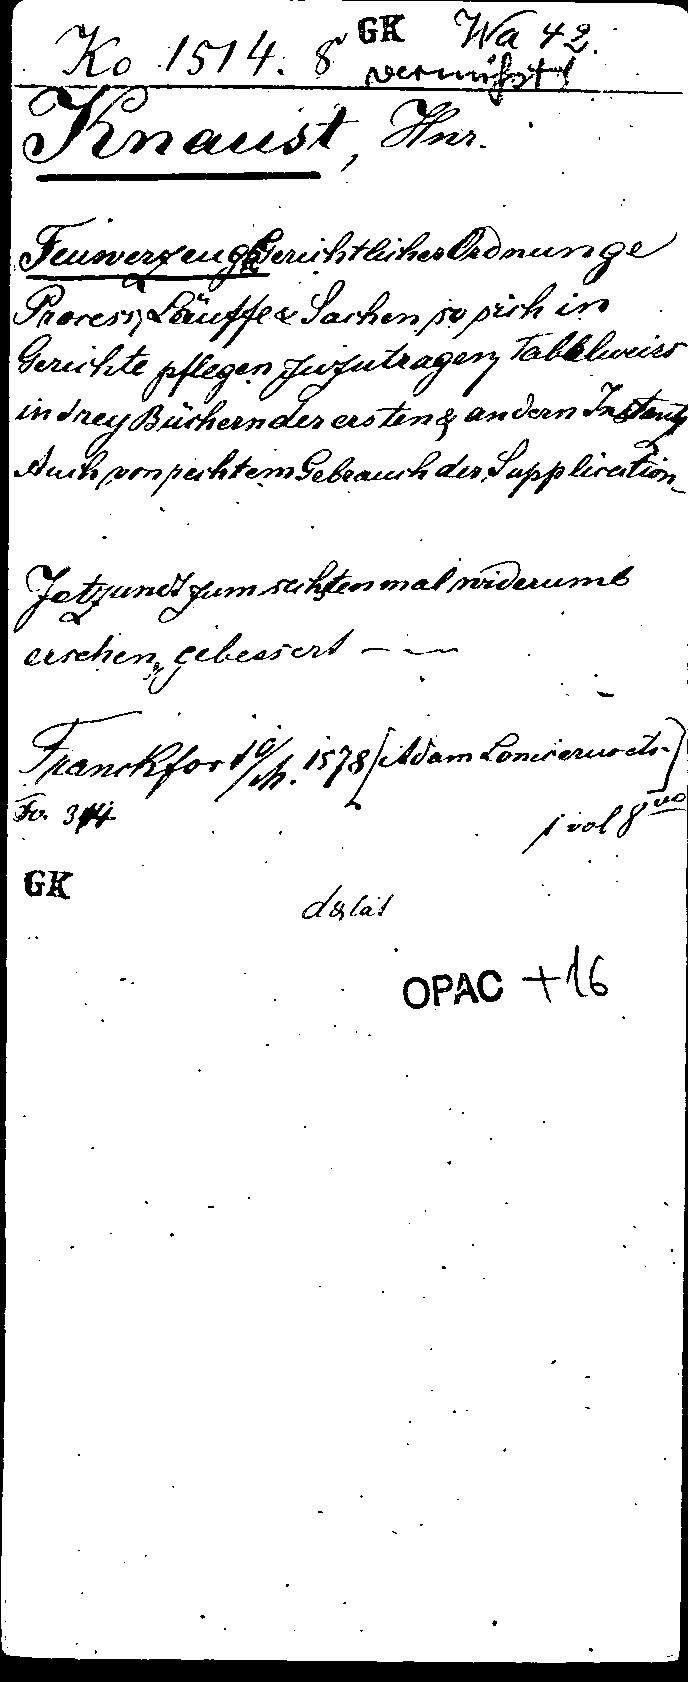 Ko 1514. 8 GK Wa 42.
vermißt!
Knaust, Hnr.
Feuwerzeugk Gerichtlicher Ordnunge
Process, Läuffe & Sachen so sich in
Gerichte pflegen zuzutragen, Tabelweiss
in drey Büchern der ersten & andern Instantz
Auch von rechtem Gebrauch der Supplication
Jetzundt zum sechsten mal widerumb
ersehen, gebessert — —
Franckfort a/M. 1578 [Adam Lonicerus etc.]
Fo. 314
1 vol 8vo
GK
OPAC +16